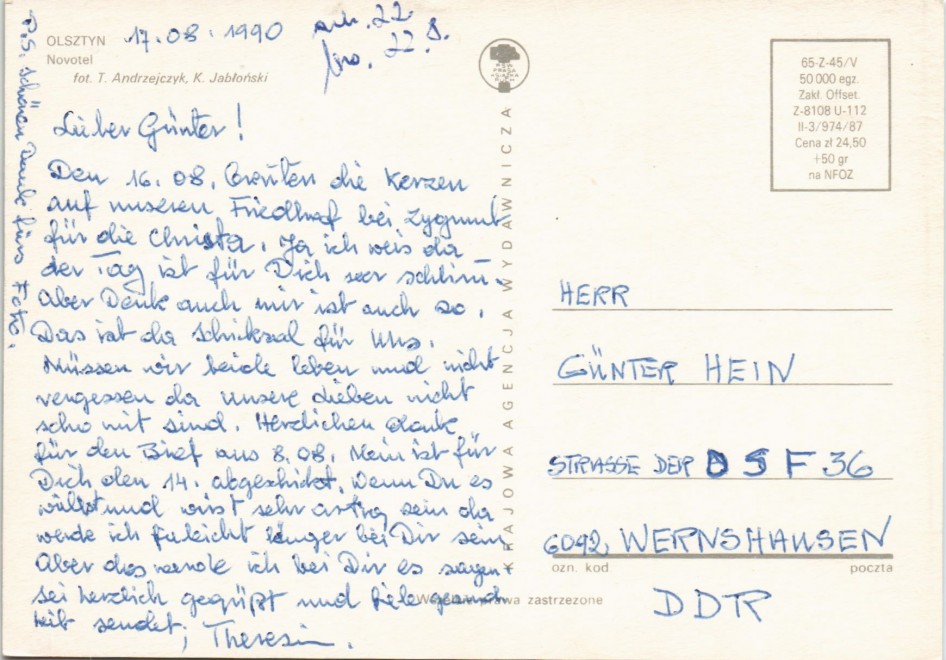 OLSZTYN 17.08.1990
Novotel
fot. T. Andrzejczyk, K. Jabłoński
22.
22.8.
Lieber Günter!
Den 16.08. die Kerzen
auf unseren Friedhof bei Zygmunt
für die Christa. Ja ich weis da
der Tag ist für Dich ser schlim.
Aber Denke auch mir ist auch so.
Das ist da Schicksal für Uns.
Müssen wir beide leben und nicht
vergessen da unsere Lieben nicht
scho mit sind. Herzlichen Dank
für den Brief aus 8.08. Mein ist für
Dich den 14. abgeschikt. Wenn Du es
willst und wirst sehr artig sein da
werde ich länger bei Dir sein
Aber das werde ich bei Dir es sagen
Sei herzlich gegrüßt und
sendet, Theresia.
P.S. Schönen Dank fürs Foto.
KRAJOWA AGENCJA WYDAWNICZA
65-Z-45/V
50 000 egz.
Zakł. Offset.
Z-8108 U-112
II-3/974/87
Cena zł 24,50
+50 gr
na NFOZ
HERR
GÜNTER HEIN
STRASSE DER DSF 36
6092 WERNSHAUSEN
ozn. kod poczta
zastrzeżone
DDR